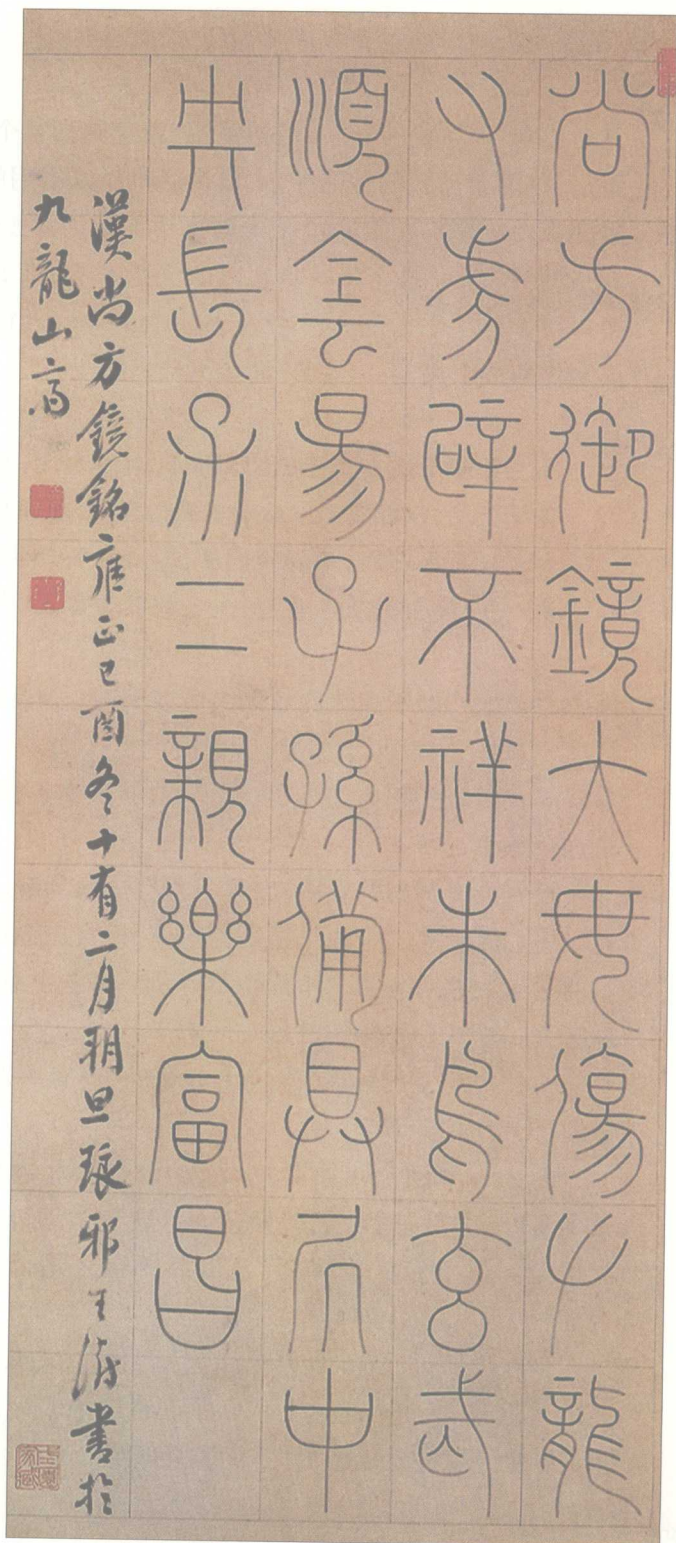 尚方御鏡大毋傷ナ龍
又虎辟不祥朱鳥玄武
順侌昜子孫備具凥中
央長保二親樂富昌
漢尚方鏡銘雍正己酉冬十有二月朔旦琅邪王澍書於
九龍山齋